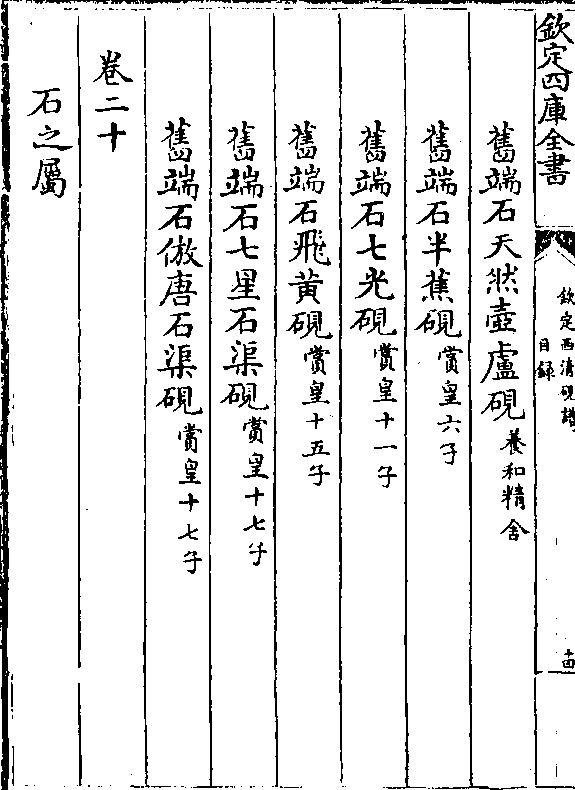 欽定四庫全書
欽定西清硯譜
目録
十四
舊端石天然壺盧硯養和精舍
舊端石半蕉硯賞皇六子
舊端石七光硯賞皇十一子
舊端石飛黄硯賞皇十五子
舊端石七星石渠硯賞皇十七子
舊端石倣唐石渠硯賞皇十七子
卷二十
石之屬